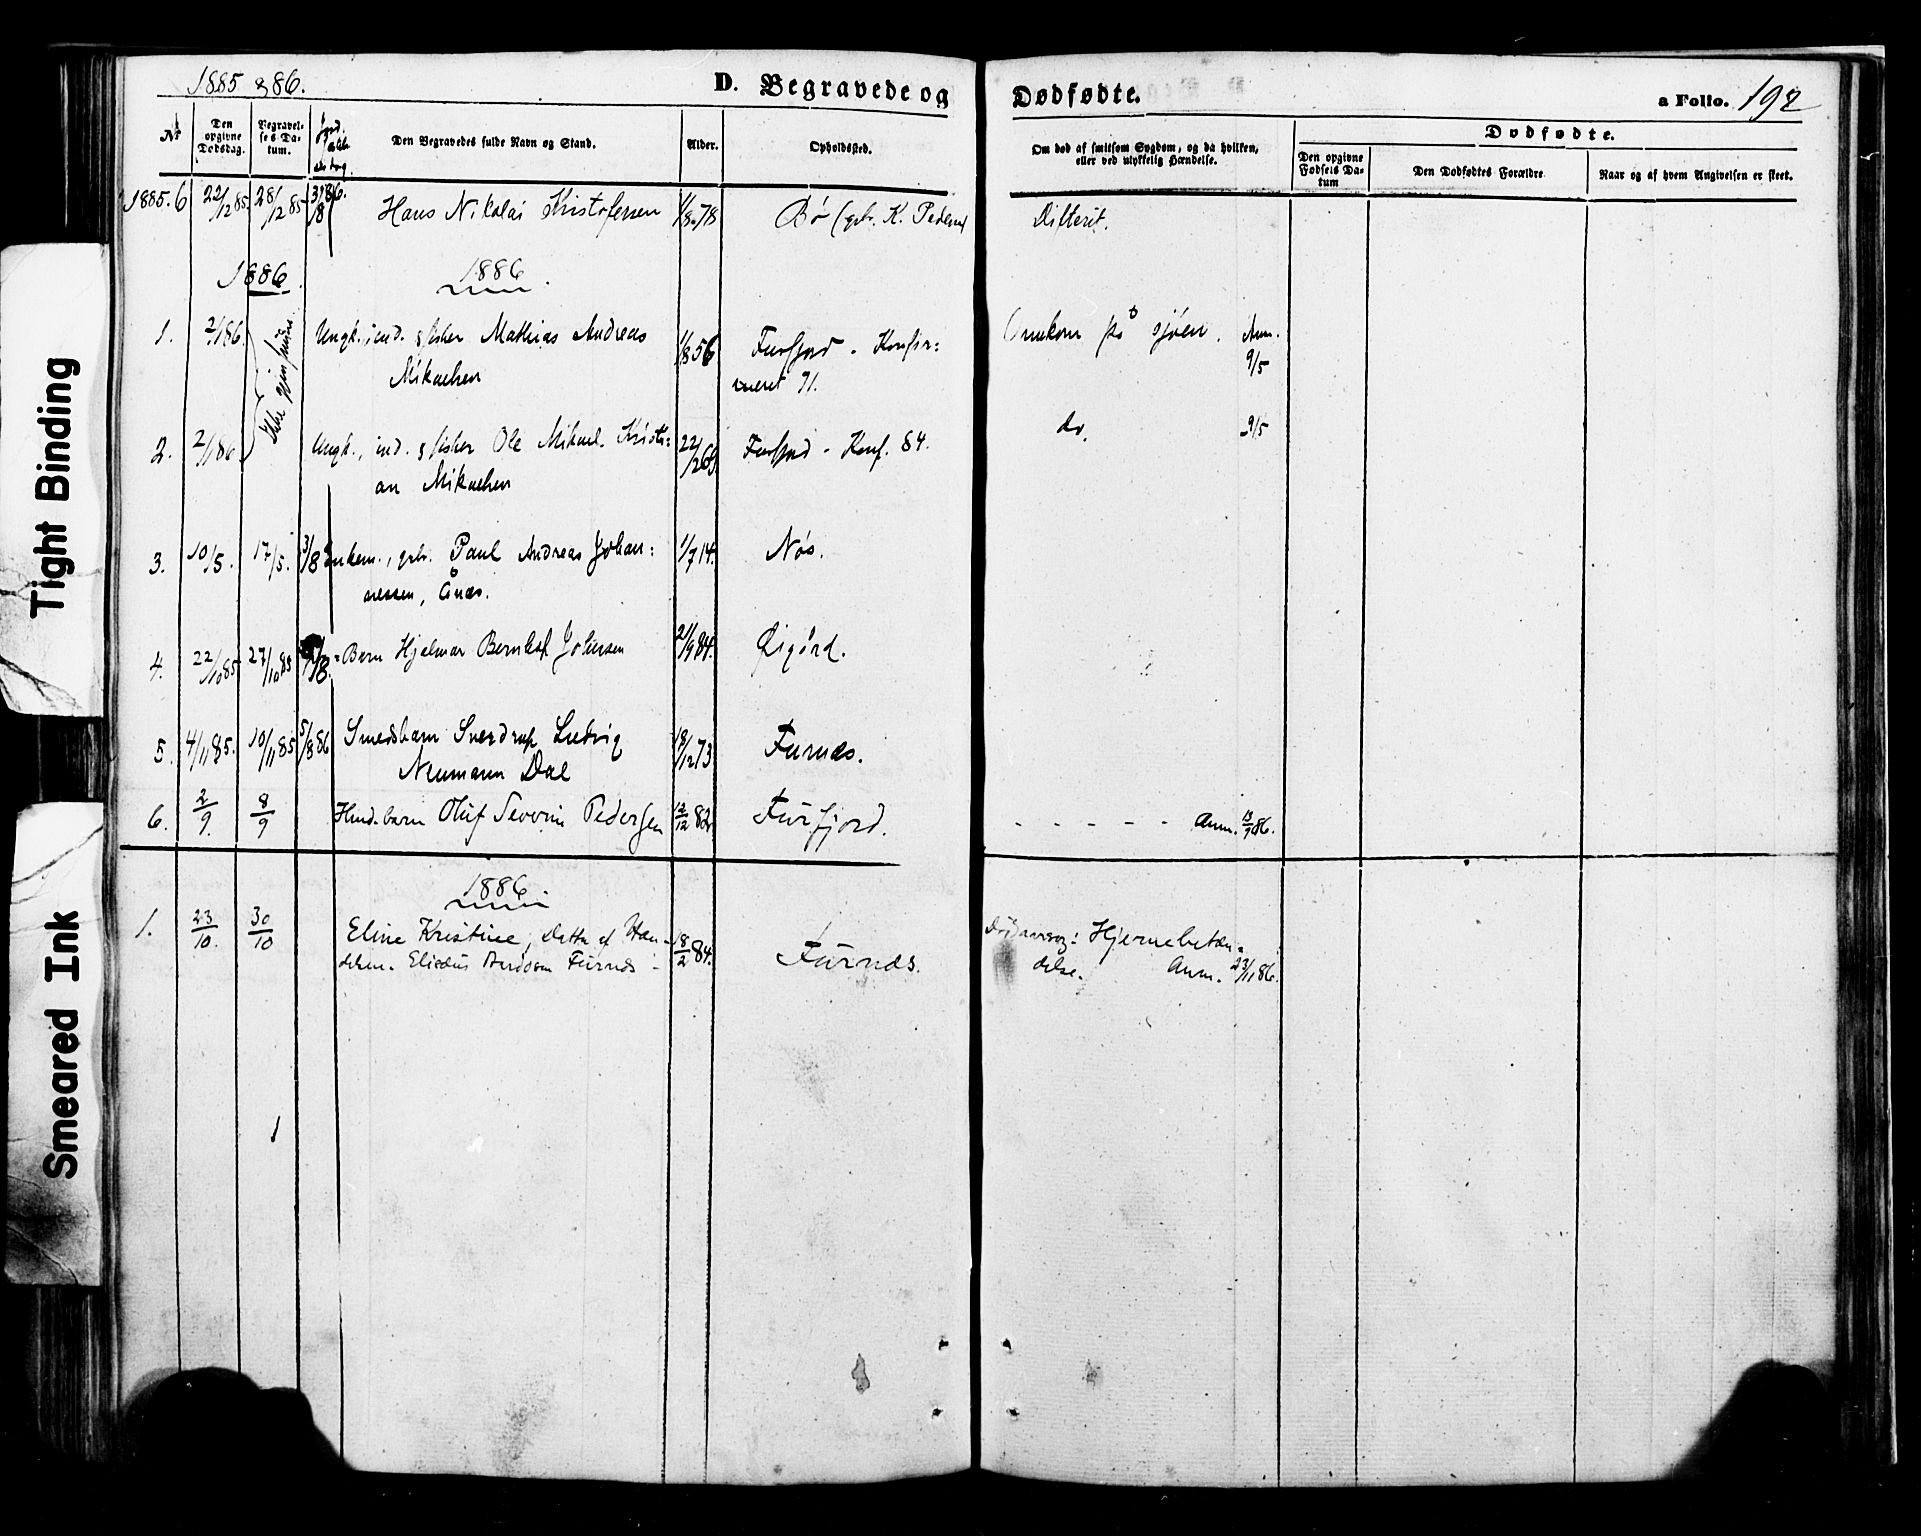 1885 & 86.
D. Begravede og Dødfødte.
a Folio. 192
No
Den opgivne Dødsdag.
Begravelses Datum.
Jord.
Den Begravedes fulde Navn og Stand.
Alder.
Opholdssted.
Om død af smitsom Sygdom, og da hvilken,
eller ved ulykkelig Hændelse.
Dødfødte.
Den opgivne Fødsels Datum
Den Dødfødtes Forældre
Naar og af hvem Angivelsen er skeet.
1885. 6 22/12 85 28/12 85 3/8 86. Hans Nikolai Kristofersen 1/8 78 Bø (gbr. K. Pedersen) Difterit.
1886 1886
1. 2/1 86. Ungk., ind. & fisker Mathias Andreas 1/8 56 Furfjord - Konfir= Omkom på sjøen. Anm.
Mikaelsen meret 71. 9/5
Ikke gjenfunden.
2. 2/1 86. Ungk., ind. & fisker Ole Mikael Kristi= 22/2 69 Furfjord - Konf. 84. do. 9/5
an Mikaelsen
3. 10/5. 17/5. 3/8 Enkem., gbr. Paul Andreas Johan= 1/7 14. Nøs.
nessen, Ånes.
4. 22/10 85 27/10 85 /8. Barn Hjelmar Bernhof Johnsen 21/9 84. Øigård.
5. 4/11 85. 10/11 85 5/8 86 Smedsbarn Sverdrup Ludvig 18/12 73 Furnes.
Neumann Dal
6. 2/9. 8/9 Husm.barn Oluf Severin Pedersen 12/12 82 Furfjord. - - - - - - Anm. 13/9 86.
1886
1. 23/10. 30/10 Eline Kristine, Datter af Han- 18/2 84. Furnes. Dødsårsag: Hjernebetæn-
delsm. Elisæus Andorsen Furnes - delse. Anm. 23/11 86.
Tight Binding
Smeared Ink